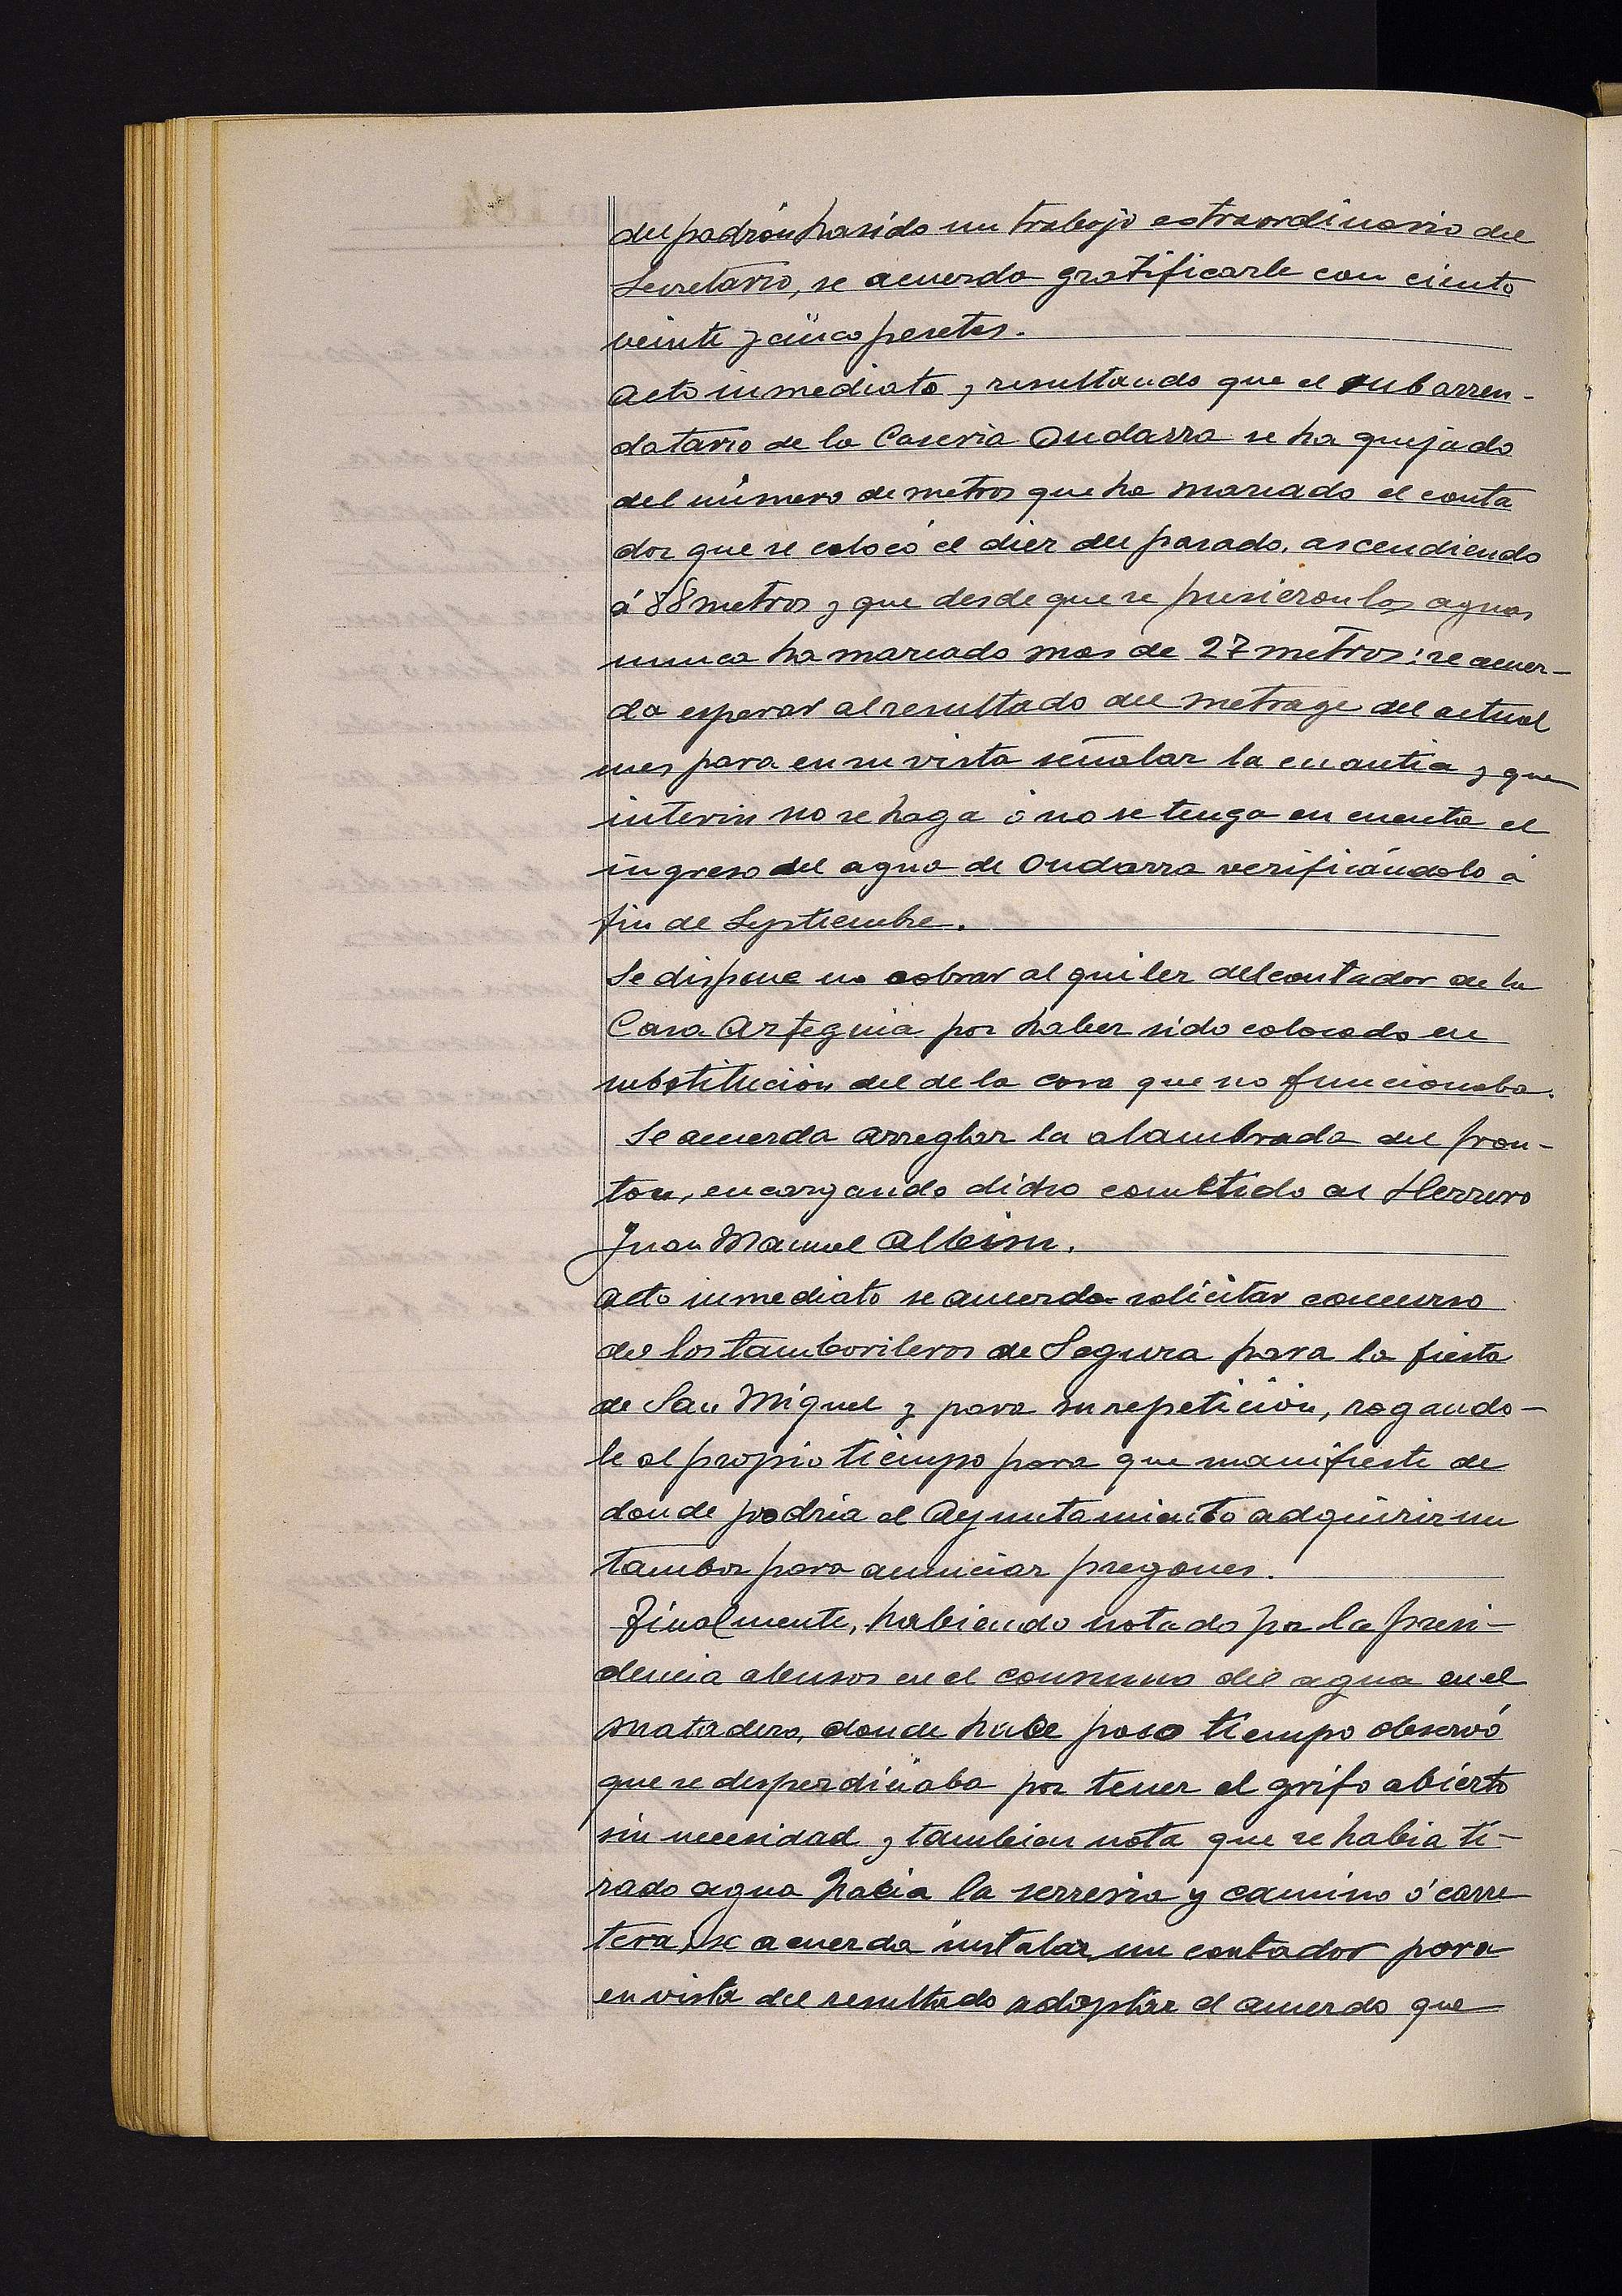 del padrón ha sido un trabajo extraordinario del
Secretario, se acuerda gratificarle con ciento
veinte y cinco pesetas.
Acto inmediato y resultando que el subarren-
datario de la Caseria Ondarra se ha quejado
del número de metros que ha marcado el conta
dor que se colocó el diez del pasado, ascendiendo
á 88 metros y que desde que se pusieron las aguas
nunca ha marcado mas de 27 metros: se acuer-
da esperar al resultado del metrage del actual
mes para en su vista señalar la cuantia y que
interin no se haga ó no se tenga en cuenta el
ingreso del agua de Ondarra verificándolo á
fin de Septiembre.
Se dispone no cobrar alquiler del contador de la
Casa Arteguia por haber sido colocado en
substitución del de la casa que no funcionaba.
Se acuerda arreglar la alambrada del fron-
ton, encargando dicho cometido al Herrero
Juan Manuel Alberm.
Acto inmediato se acuerda solicitar concurso
de los tamborileros de Segura para la fiesta
de San Miguel y para su repetición, rogando-
le al propio tiempo para que manifieste de
donde podria el Ayuntamiento adquirir un
tambor para anunciar pregones.
Finalmente, habiendo notado por la presi-
dencia abusos en el consumo del agua en el
matadero, donde hace poco tiempo observó
que se desperdiciaba por tener el grifo abierto
sin necesidad y tambien nota que se habia ti-
rado agua hacia la serreria y camino ó carre
tera, se acuerda instalar un contador para
en vista del resultado adoptar el acuerdo que